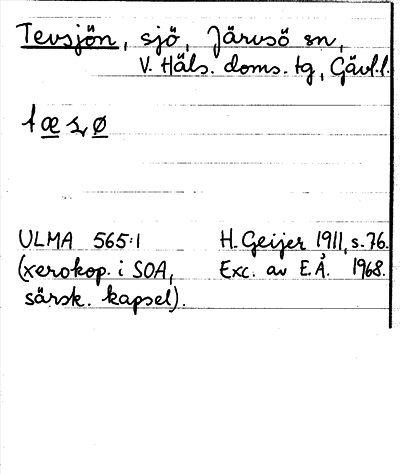 Tevsjön, sjö, Järvsö sn,
V. Häls. doms. tg, Gävl.l.
ULMA 565:1 H. Geijer 1911, s. 76.
(xerokop. i SOA, Exc. av E.Å. 1968.
särsk. kapsel).